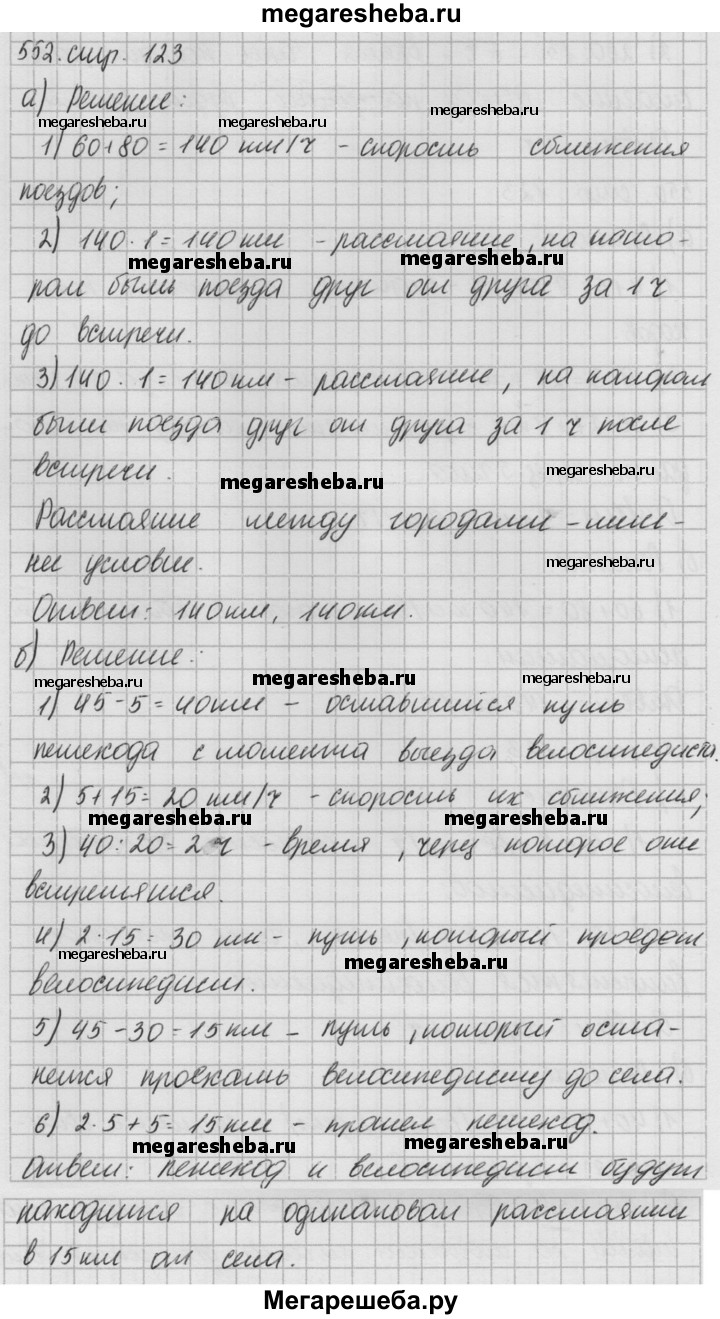 megaresheba.ru
552. стр. 123
а) Решение:
megaresheba.ru megaresheba.ru megaresheba.ru
1) 60+80=140 км/ч - скорость сближения
поездов;
2) 140·1=140км - расстояние, на кото-
megaresheba.ru megaresheba.ru
ром были поезда друг от друга за 1 ч
до встречи.
3) 140·1=140км - расстояние, на котором
были поезда друг от друга за 1 ч после
встречи.
megaresheba.ru megaresheba.ru
Расстояние между городами - лиш-
нее условие.
megaresheba.ru
Ответ: 140км, 140км.
б) Решение:
megaresheba.ru megaresheba.ru megaresheba.ru
1) 45-5=40км - оставшийся путь
пешехода с момента выезда велосипедиста.
2) 5+15=20 км/ч - скорость их сближения;
megaresheba.ru megaresheba.ru
3) 40:20=2 ч - время, через которое они
встретятся.
4) 2·15=30 км - путь, который проедет
megaresheba.ru megaresheba.ru
велосипедист.
5) 45-30=15км - путь, который оста-
нется проехать велосипедисту до села.
6) 2·5+5=15км - прошел пешеход.
megaresheba.ru megaresheba.ru
Ответ: пешеход и велосипедист будут
находится на одинаковом расстоянии
в 15км от села.
Мегарешеба.ру